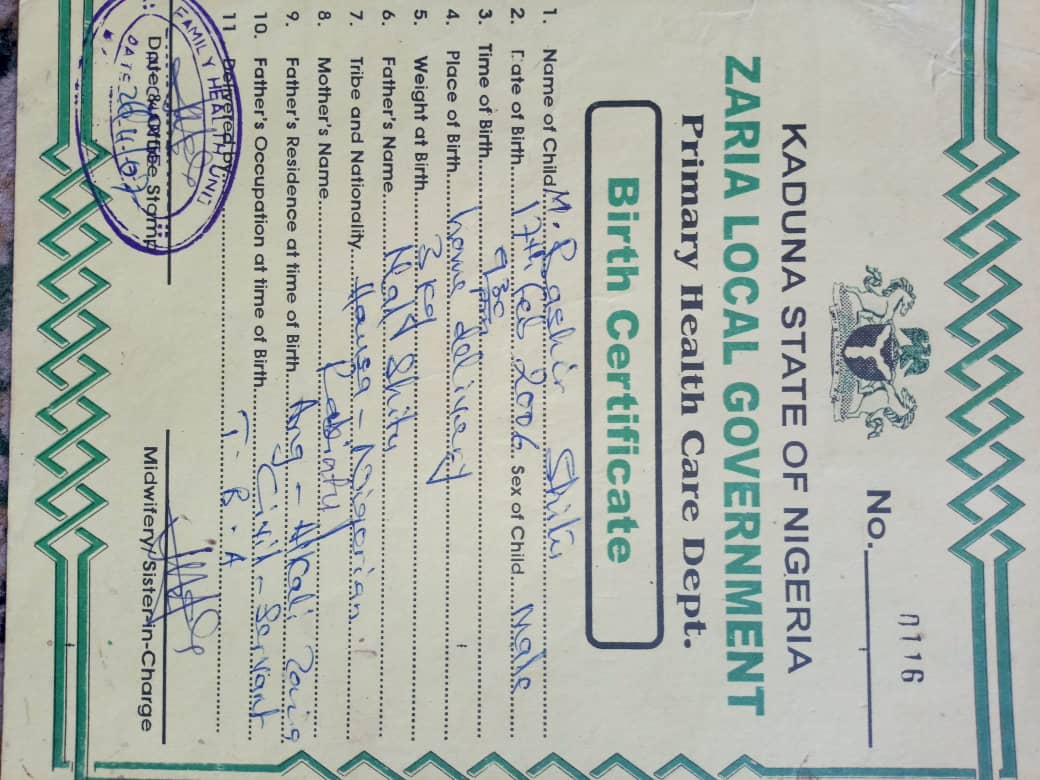 KADUNA STATE OF NIGERIA
No. 0116
ZARIA LOCAL GOVERNMENT
Primary Health Care Dept.
Birth Certificate
1. Name of Child M. Bashir Shitu
2. Date of Birth 17th Feb 2006. Sex of Child Male
3. Time of Birth 930 pm
4. Place of Birth home delivery
5. Weight at Birth 3 kg
6. Father's Name Shitu
7. Tribe and Nationality Hausa - Nigerian
8. Mother's Name Rabiatu
9. Father's Residence at time of Birth Ang - Alkali Zaria
10. Father's Occupation at time of Birth Civil - Servant
11 Delivered by T.B.A
Date & Office Stamp
FAMILY HEALTH UNIT
DATE
Midwifery/Sister-in-Charge